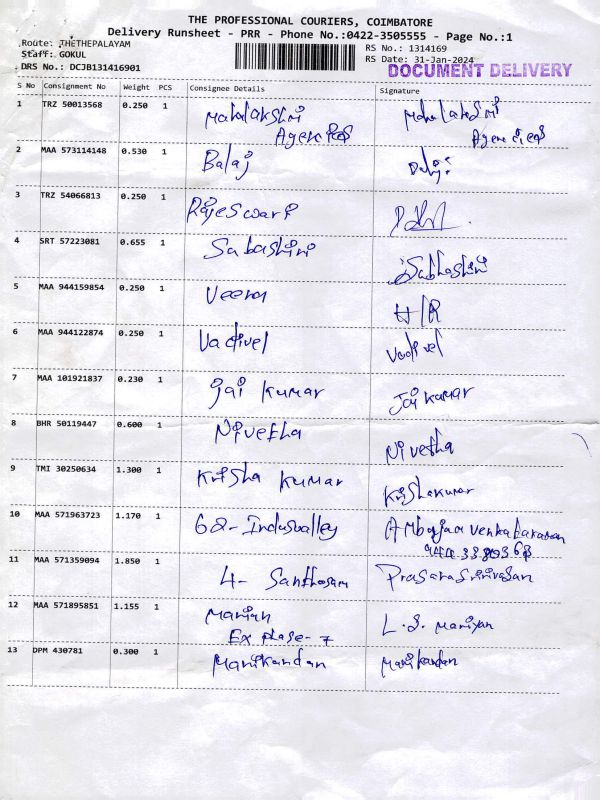 THE PROFESSIONAL COURIERS, COIMBATORE
Delivery Runsheet - PRR - Phone No.:0422-3505555 - Page No.:1
Route: THETHEPALAYAM RS No.: 1314169
Staff: GOKUL RS Date: 31-Jan-2024
DRS No.: DCJB131416901 DOCUMENT DELIVERY
S No Consignment No Weight PCS Consignee Details Signature
1 TRZ 50013568 0.250 1 Mahalakshmi
Agencies Agencies
2 MAA 573114148 0.530 1 Balaj
3 TRZ 54066813 0.250 1 Rajeswari
4 SRT 57223081 0.655 1 Sabashini Sabhashini
5 MAA 944159854 0.250 1 Veera H/R
6 MAA 944122874 0.250 1 Vadivel Vadivel
7 MAA 101921837 0.230 1 jai kumar Jai kumar
8 BHR 50119447 0.600 1 Nivetha Nivetha
9 TMI 30250634 1.300 1 Krisha kumar Krishakumar
10 MAA 571963723 1.170 1 68-Indusvalley
11 MAA 571359094 1.850 1 4- Santhosam
12 MAA 571895851 1.155 1 Manian L.S. Maniyan
Ex phase- 7
13 DPM 430781 0.300 1 Manikandan Manikandan